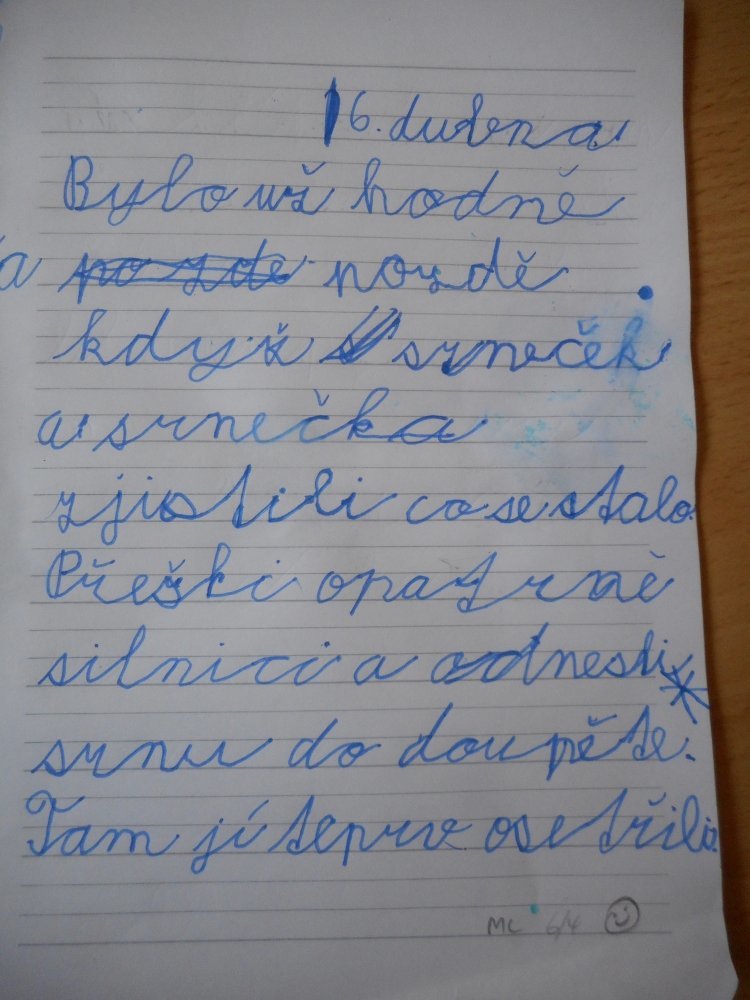 6. dubna
Bylo už hodně
pozdě
když srneček
a srnečka
zjistili co se stalo
Přešli opatrně
silnici a odnesli
srnu do doupěte.
Tam jí teprve ošetřili
MC 6/4